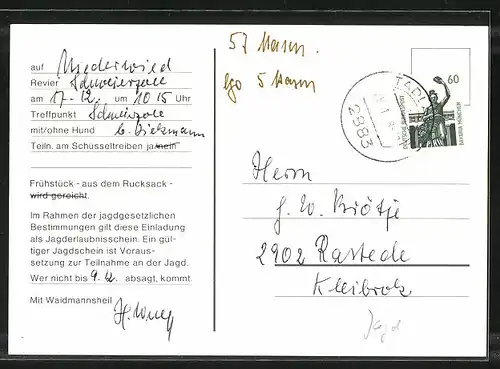 auf Niederwild
Revier Schweizerzole
am 17-12. um 10 15 Uhr
Treffpunkt Schweizerzole
mit/ohne Hund b. Diekmann
Teiln. am Schüsseltreiben ja/nein
Frühstück - aus dem Rucksack -
wird gereicht.
Im Rahmen der jagdgesetzlichen
Bestimmungen gilt diese Einladung
als Jagderlaubnisschein. Ein gül-
tiger Jagdschein ist Voraus-
setzung zur Teilnahme an der Jagd.
Wer nicht bis 9.12. absagt, kommt.
Mit Waidmannsheil
57 Hasen.
5 Hasen
60
DEUTSCHE BUNDESPOST
BAVARIA MÜNCHEN
2883
Herrn
J. W. Brötje
2902 Rastede
Kleibrok
Jagd